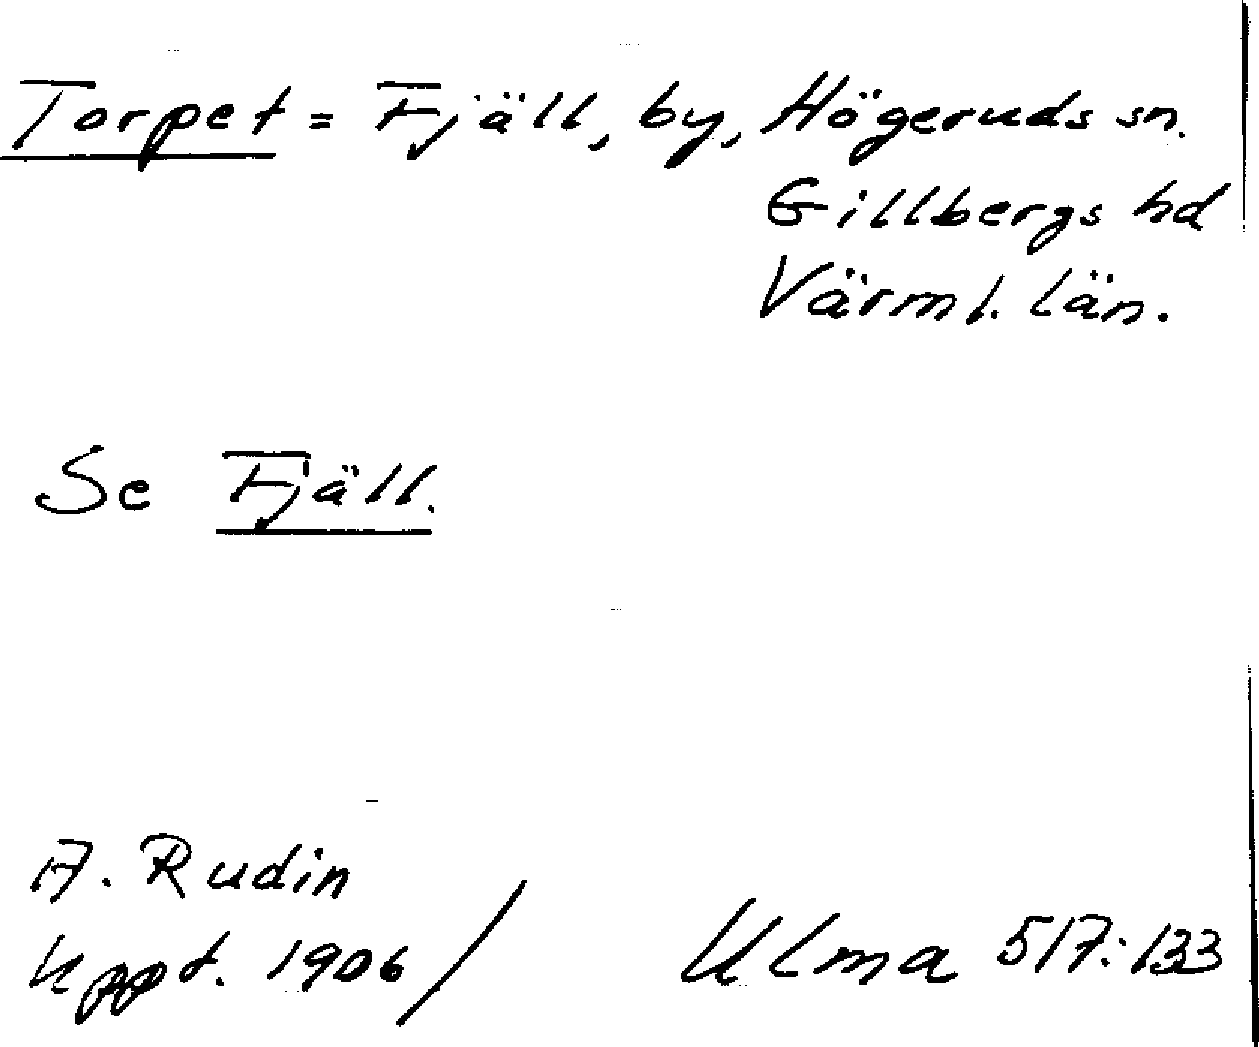 Torpet = Fjäll, by, Högeruds sn.
Gillbergs hd
Värml. län.
Se Fjäll.
A. Rudin
Uppt. 1906 /
Ulma 517:133